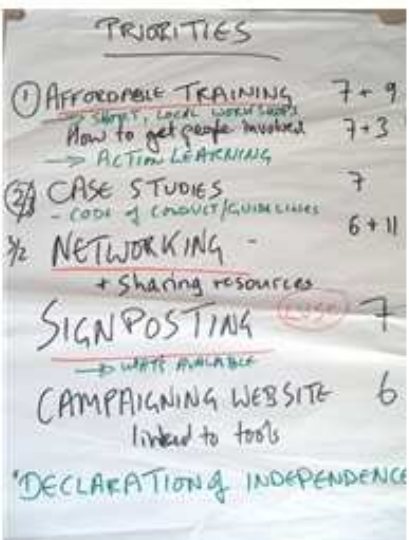 PRIORITIES
① AFFORDABLE TRAINING 7 + 9
→ SHORT, LOCAL WORKSHOPS
How to get people involved 7+3
→ ACTION LEARNING
CASE STUDIES 7
- CODE of CONDUCT/GUIDELINES
NETWORKING - 6 + 11
+ sharing resources
SIGNPOSTING 7
→ WHATS AVAILABLE
CAMPAIGNING WEBSITE 6
linked to tools
'DECLARATION of INDEPENDENCE